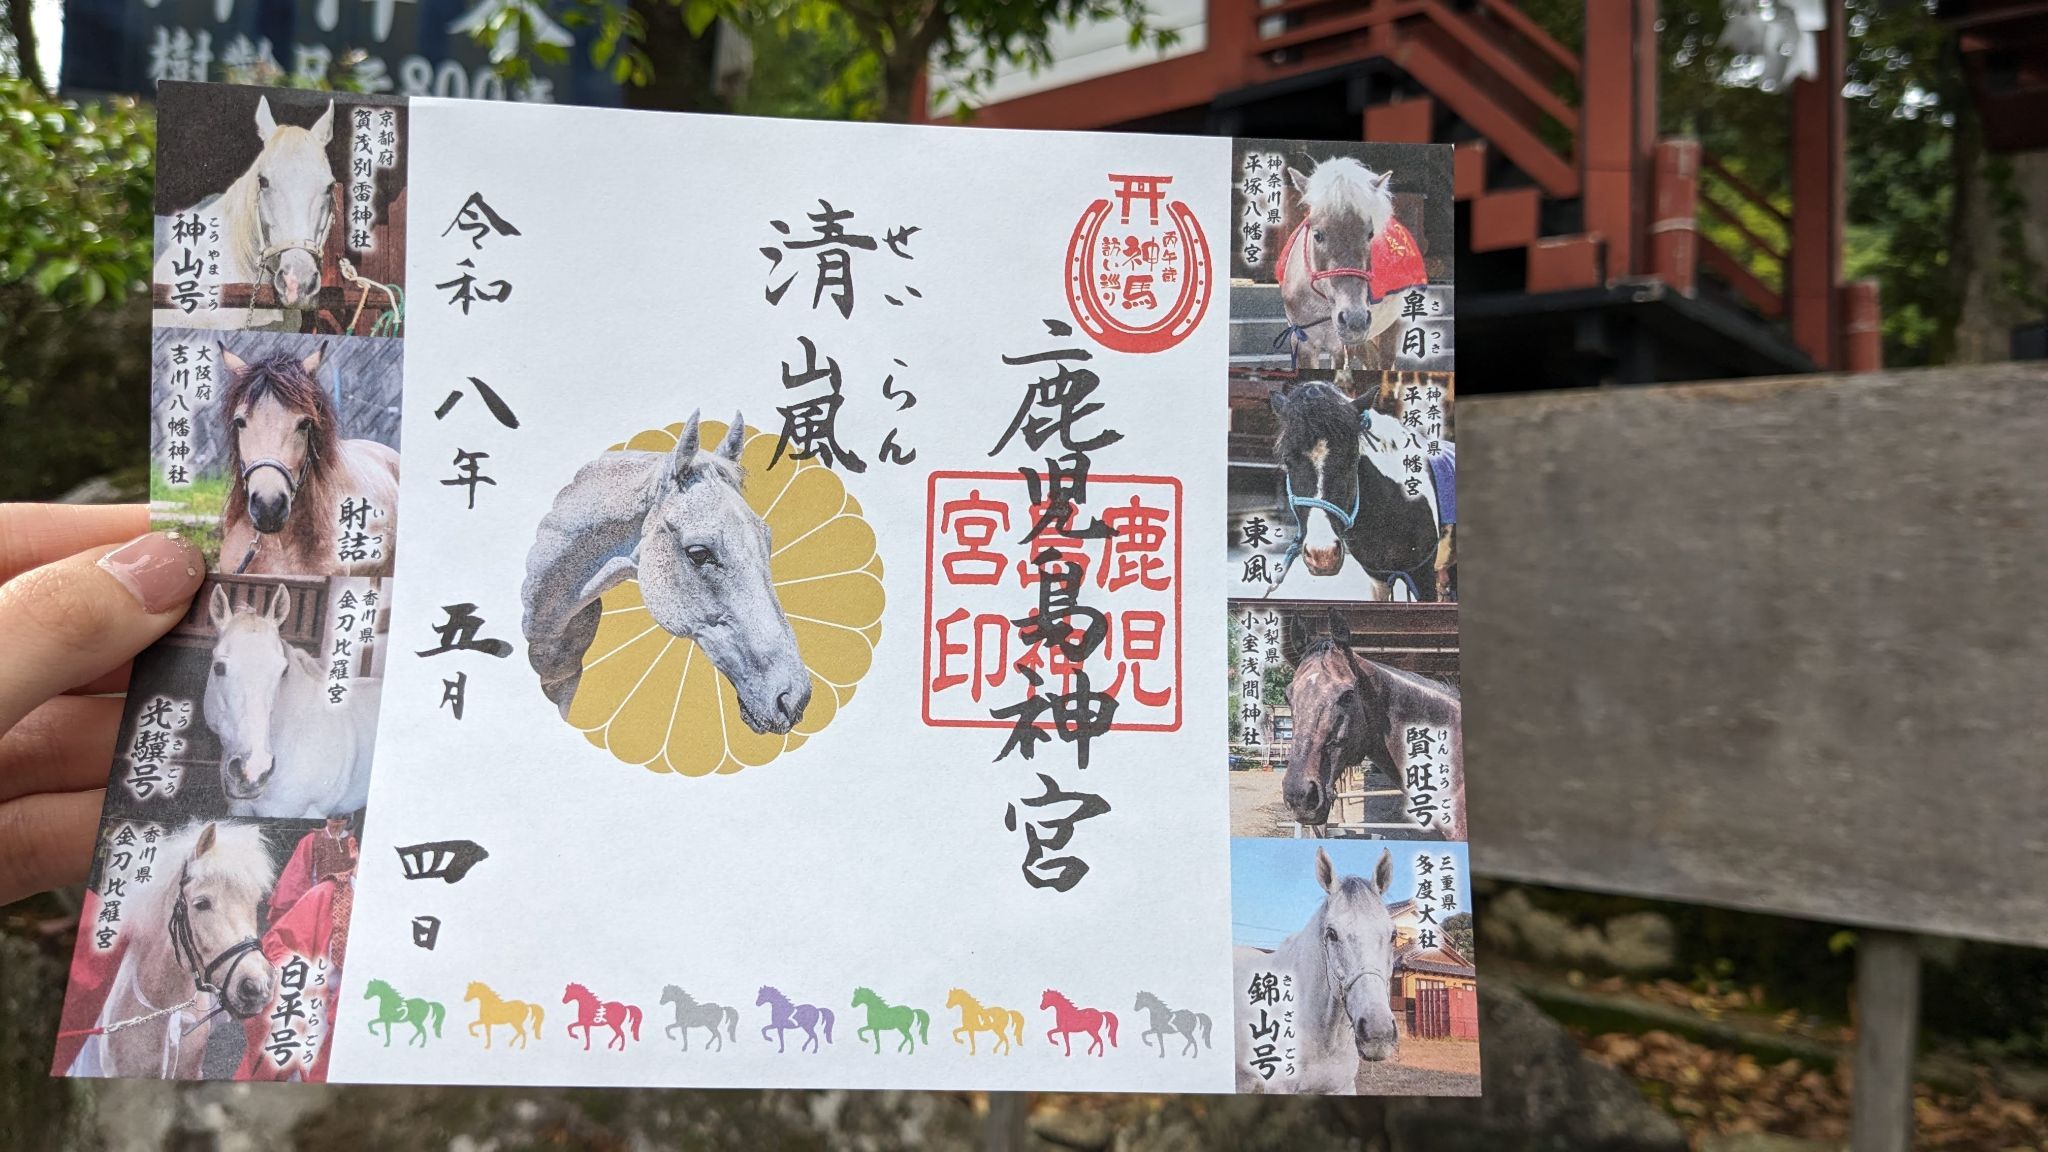 樹齢
800
鹿児島神宮
清嵐
せいらん
令和八年五月四日
丙午歳
神馬
訪い巡り
鹿児
島神
宮印
神奈川県
平塚八幡宮
皐月
さつき
神奈川県
平塚八幡宮
東風
こち
山梨県
小室浅間神社
賢旺号
けんおうごう
三重県
多度大社
錦山号
きんざんごう
京都府
賀茂別雷神社
神山号
こうやまごう
大阪府
吉川八幡神社
射詰
いづめ
香川県
金刀比羅宮
光驥号
こうきごう
香川県
金刀比羅宮
白平号
しろひらごう
ま